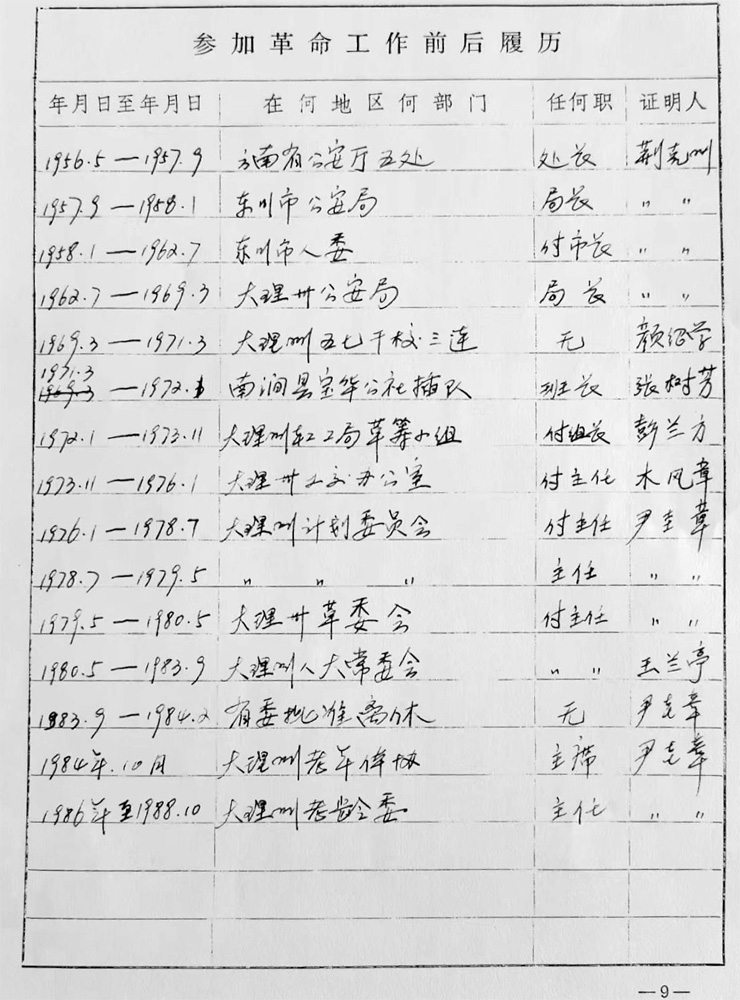 参加革命工作前后履历
年月日至年月日 在何地区何部门 任何职 证明人
1956.5—1957.9 云南省公安厅五处 处长 荆克州
1957.9—1958.1 东川市公安局 局长 〃 〃
1958.1—1962.7 东川市人委 付市长 〃 〃
1962.7—1969.3 大理卅公安局 局长 〃 〃
1969.3—1971.3 大理州五七干校三连 无 颜继学
1971.3
1969.3—1972.1 南涧县宝华公社插队 班长 张树芳
1972.1—1973.11 大理州轻工局草筹小组 付组长 彭兰方
1973.11—1976.1 大理卅工交办公室 付主任 木凤章
1976.1—1978.7 大理州计划委员会 付主任 尹奎章
1978.7—1979.5 〃 〃 〃 主任 〃 〃
1979.5—1980.5 大理卅革委会 付主任 〃 〃
1980.5—1983.9 大理州人大常委会 〃 〃 王兰亭
1983.9—1984.2 省委批准离休 无 尹克章
1984年.10月 大理州老年体协 主席 尹克章
1986年至1988.10 大理州老龄委 主任 〃 〃
—9—